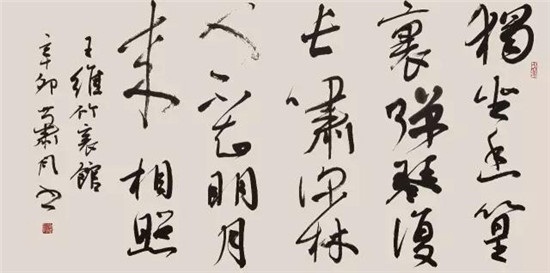 獨坐幽篁
裏彈琴復
長嘯深林
人不知明月
來相照
王維竹裏館
辛卯